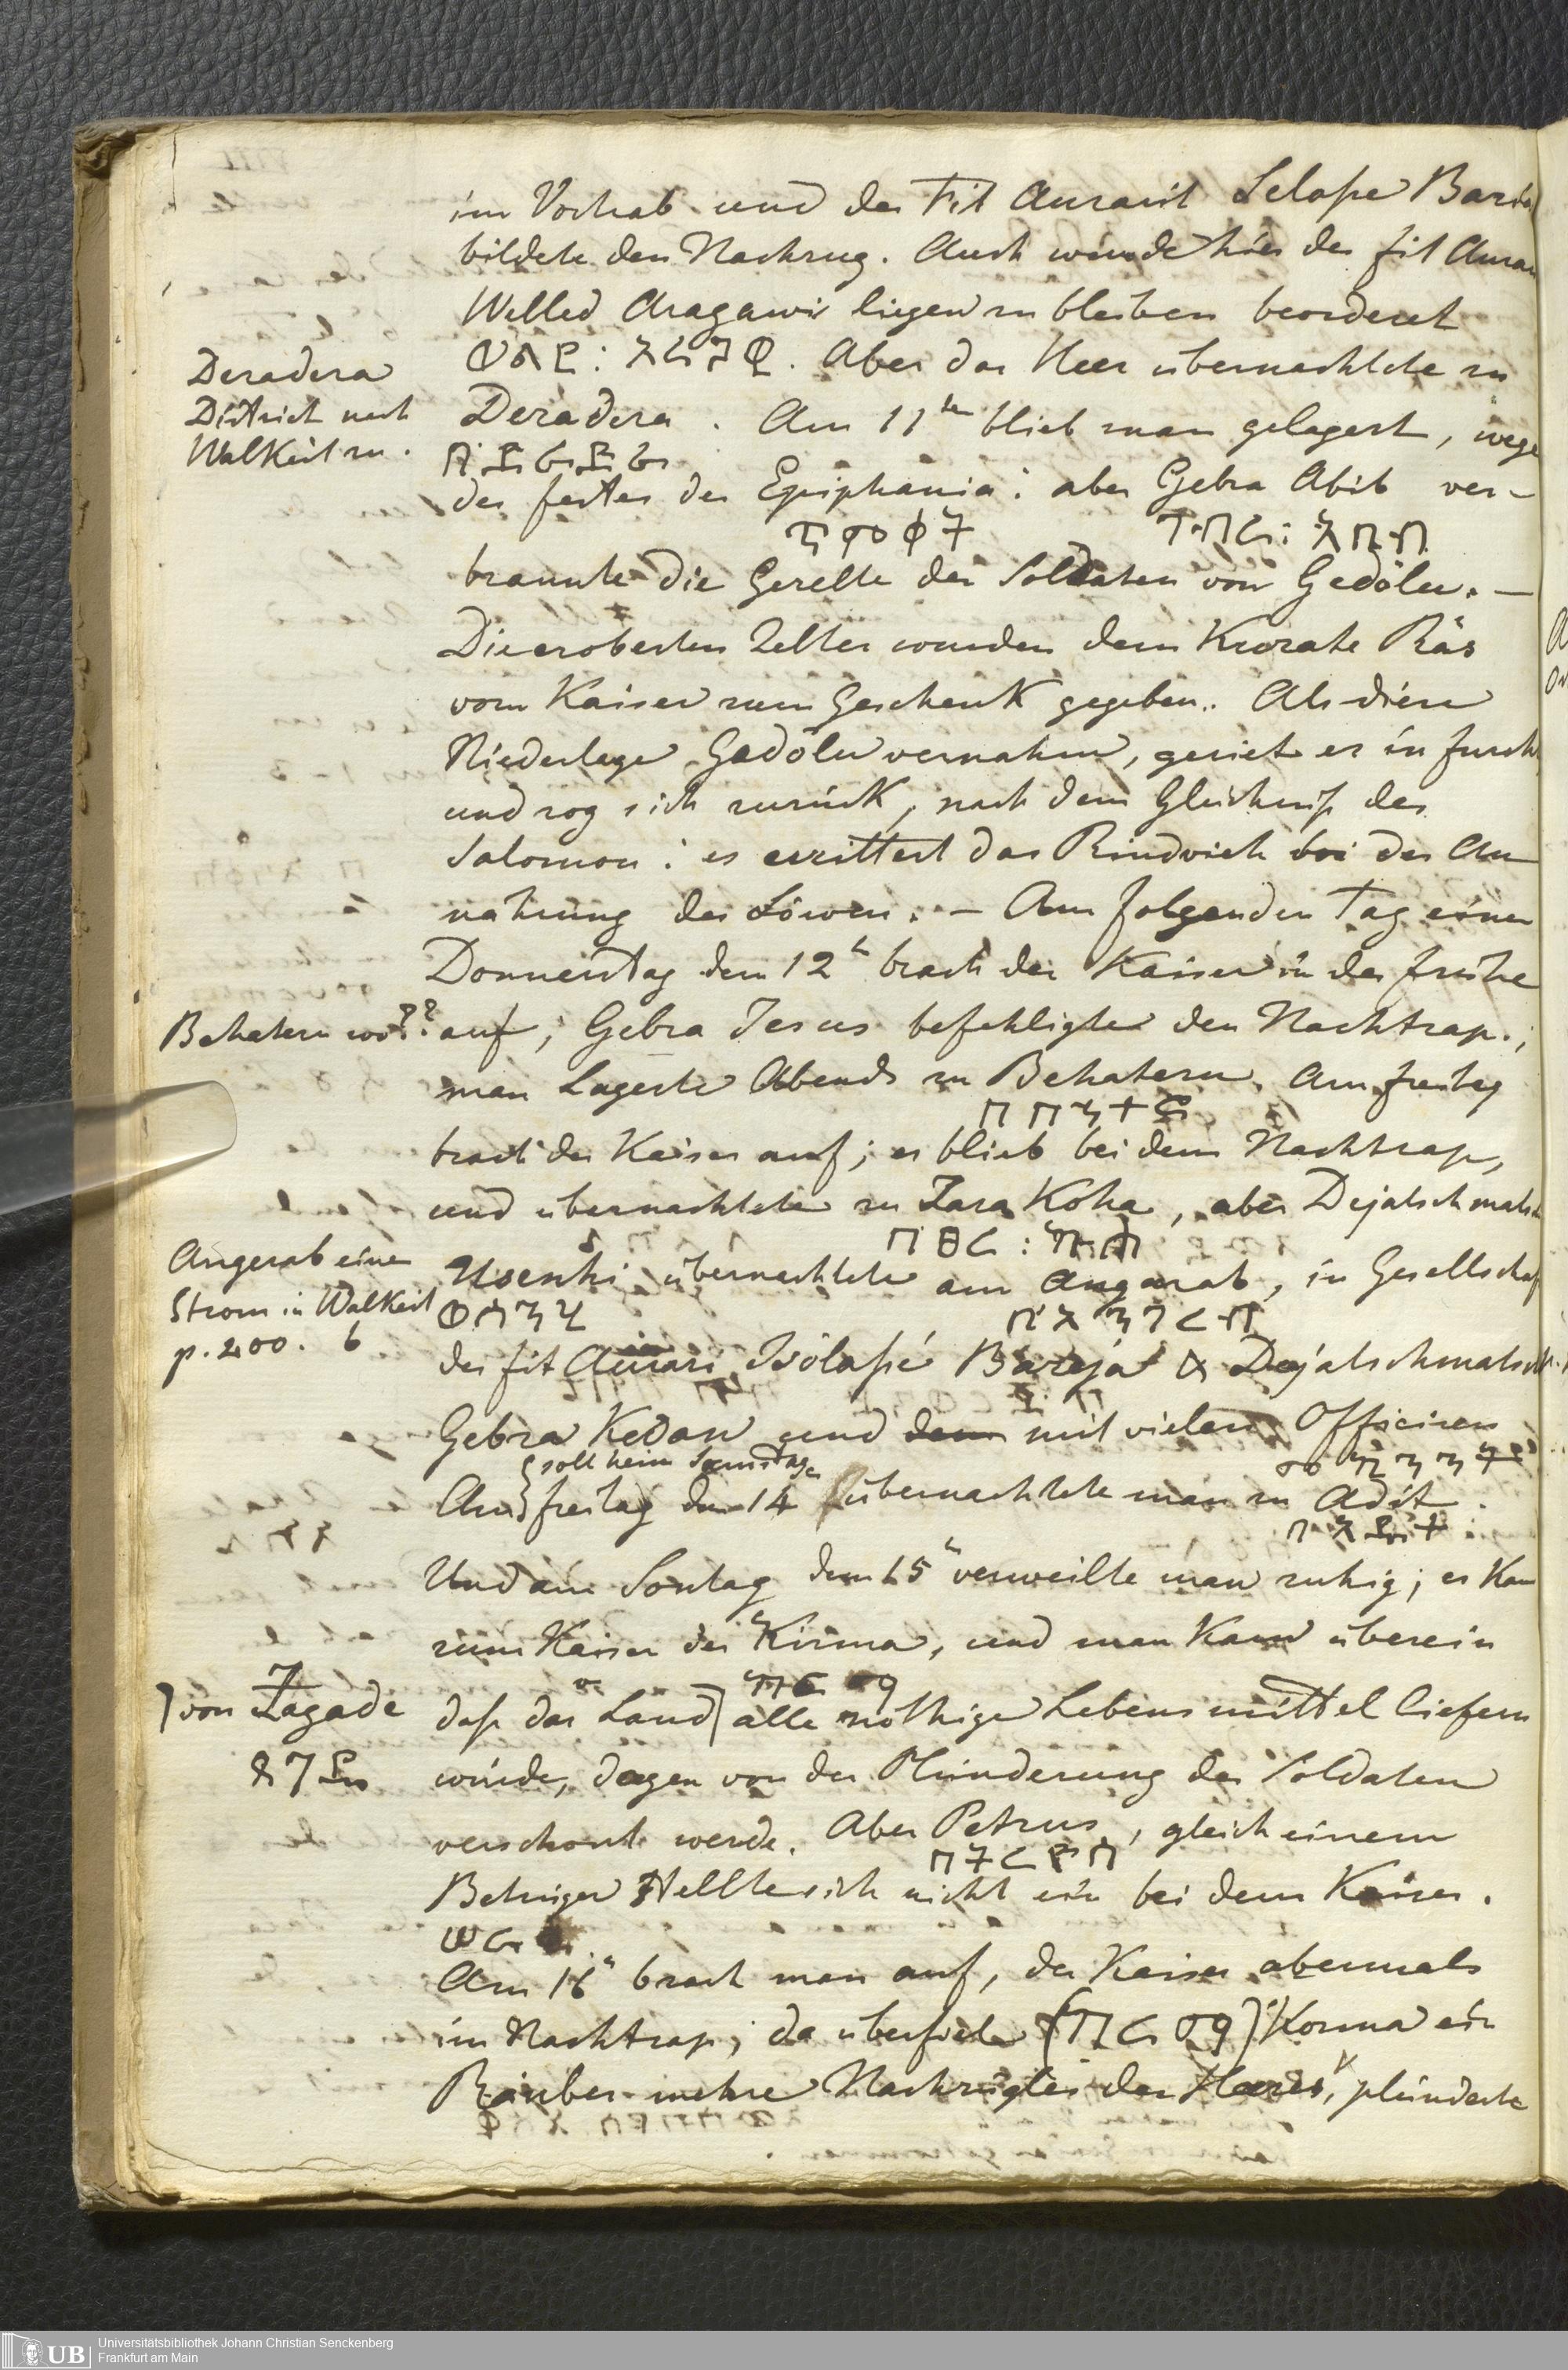 im Vortrab und der Fit Auraril Selasse Baria
bildete den Nachzug. Auch wurde hier der fit Aurar
Welled Aragawi liegen zu bleiben beordert
ወልደ: አረጋዊ. Aber das Heer übernachtete zu
Deradera
District nach
Walkeit zu.
Deradera. Am 11ten blieb man gelagert, wege
በ ዴራዴራ
des festes der Epiphania: aber Gebra Abib ver-
ጥምቀት ገብረ: አቢብ
brannte die Gezelte der Soldaten von Gedölu. —
Die eroberten Zelter wurden dem Kurate Räs
vom Kaiser zum Geschenk gegeben. Als diese
Niederlage Gadölu vernahm, geriet er in furch
und zog sich zurück, nach dem Gleichniss des
Salomon: es erzittert das Rindvieh bei der An
nahrung des Löwen. — Am folgenden Tag einen
Donnerstag dem 12t brach der Kaiser in der frühe
Behatern wo??
auf; Gebra Jesus befehligte den Nachtrap.;
man Lagerte Abends zu Behatern. Am freitag
በ በኅተር
brach der Kaiser auf; er blieb bei dem Nachtrap,
und übernachtete zu Zara Koha, aber Dejatschmatsch
Angerab einen
Strom in Walkeit
p. 200. b
Usenhi übernachtete am Angarab, in Gesellschaf
በ አንገረብ
der fit Aurari Isölassé Bareja & Dejatschmatsch
Gebra Kedan und dem mit vielen Officiren
soll heissen Samstag
Am freitag den 14n übernachtete man zu Adit.
Und am Sontag dem 15n verweilte man ruhig; es Kam
zum Kaiser der Kirma, und man Kam überein
ኪርማ
von Zagade
ጸገዴ
dass das Land alle nöthige Lebensmittel liefern
würde, dagen von der Plünderung der Soldaten
verschont werde. Aber Petrus, gleich einem
ጴጥሮስ
Betriger stellte sich nicht ein bei dem Kaiser.
Am 16n brach man auf, der Kaiser abermals
im Nachtrap; da überfiele (ኪርማ) Korma ein
Räuber mehre Nachzügler des Heeres, plünderte
UB Universitätsbibliothek Johann Christian Senckenberg
Frankfurt am Main